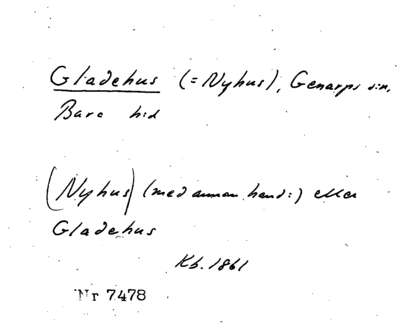 Gladehus (= Nyhus), Genarps sn,
Bara hd
(Nyhus) (med annan hand:) eller
Gladehus
Kb. 1861
Nr 7478